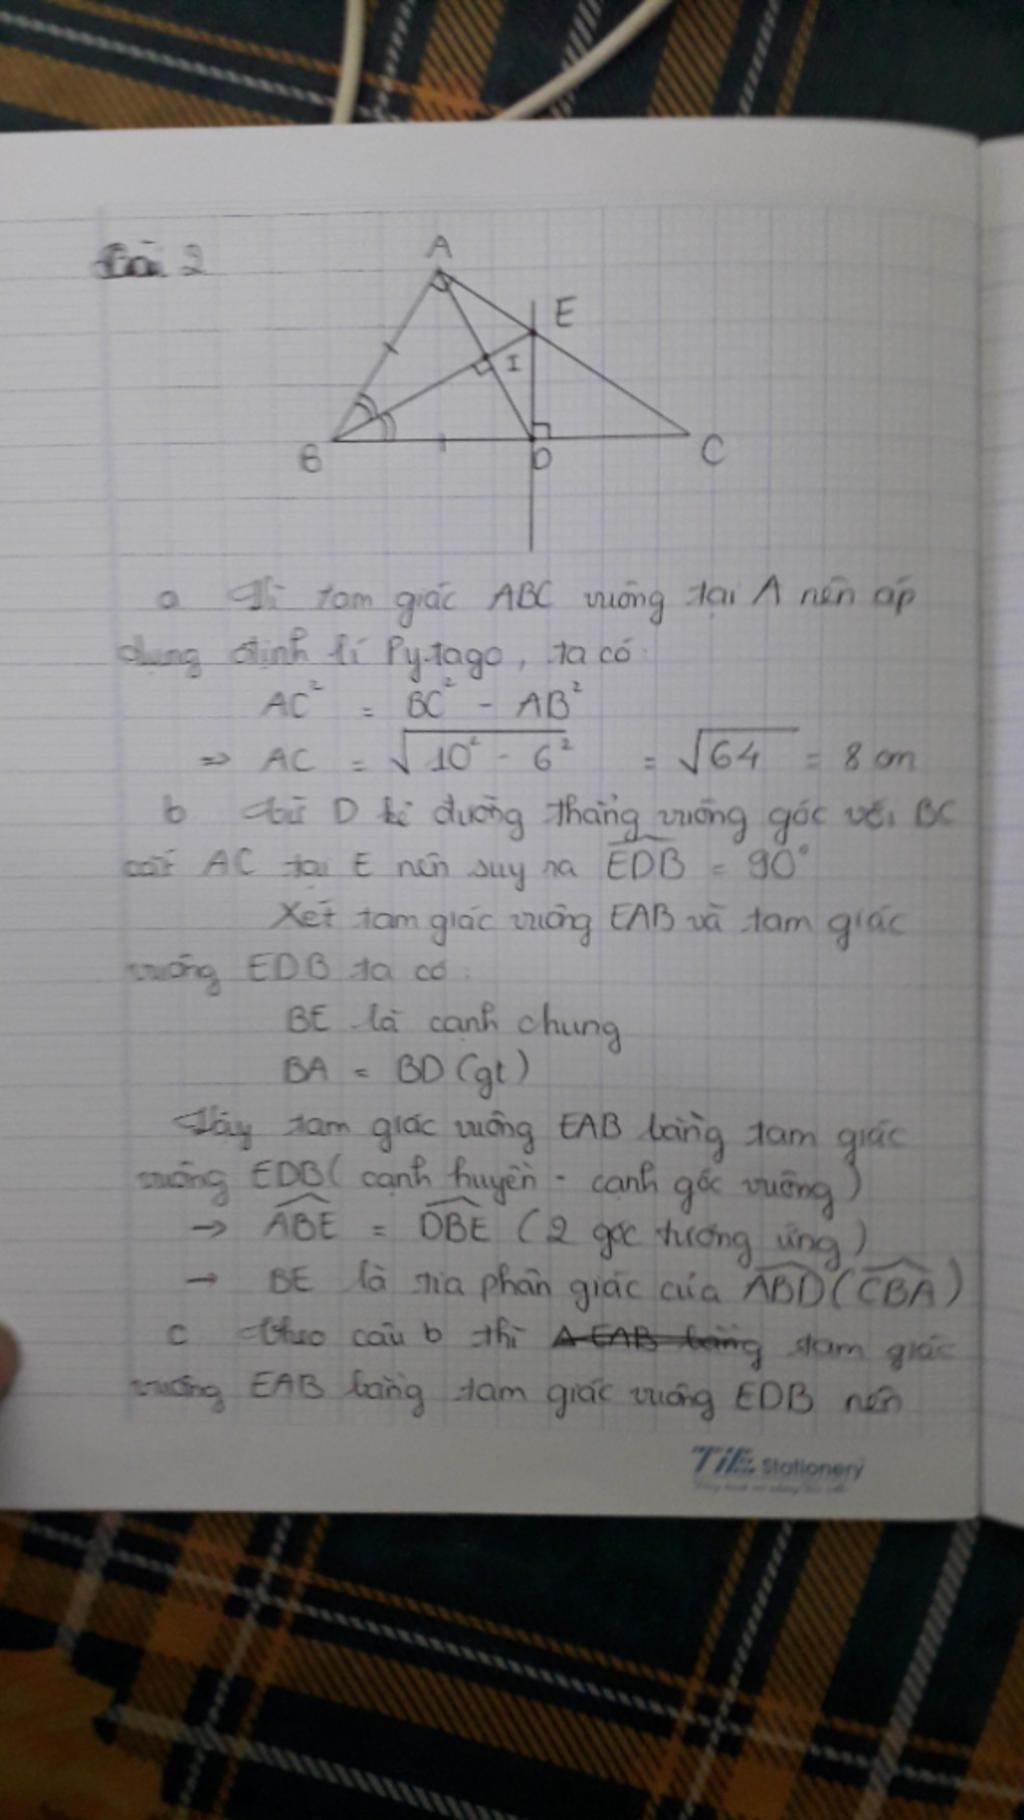 Bài 2
A
E
I
B
D
C
a Vì tam giác ABC vuông tại A nên áp
dụng định lí Pytago, ta có:
AC² = BC² - AB²
=> AC = √10² - 6² = √64 = 8 cm
b từ D kẻ đường thẳng vuông góc với BC
cắt AC tại E nên suy ra EDB = 90°
Xét tam giác vuông EAB và tam giác
vuông EDB ta có:
BE là cạnh chung
BA = BD (gt)
Vậy tam giác vuông EAB bằng tam giác
vuông EDB (cạnh huyền - cạnh góc vuông)
→ ABE = DBE (2 góc tương ứng)
→ BE là tia phân giác của ABD (CBA)
c theo câu b thì Δ EAB bằng tam giác
vuông EAB bằng tam giác vuông EDB nên
TiE Stationery